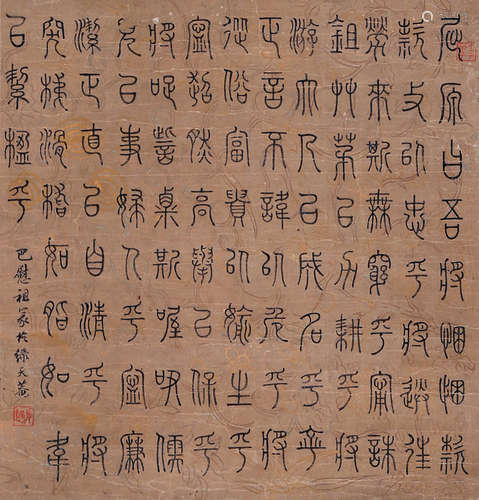 屈原曰吾將悃悃款
款朴以忠乎將送往
勞來斯無窮乎甯誅
鉏艸茅以力耕乎將
游大人以成名乎寧
正言不諱以危乎將
從俗富貴以媮生乎
寧超然高舉以保乎
將哫訾栗斯喔咿儒
兒以事婦人乎寧廉
潔正直以自清乎將
突梯滑稽如脂如韋
以絜楹乎
巴慰祖篆於綠天菴